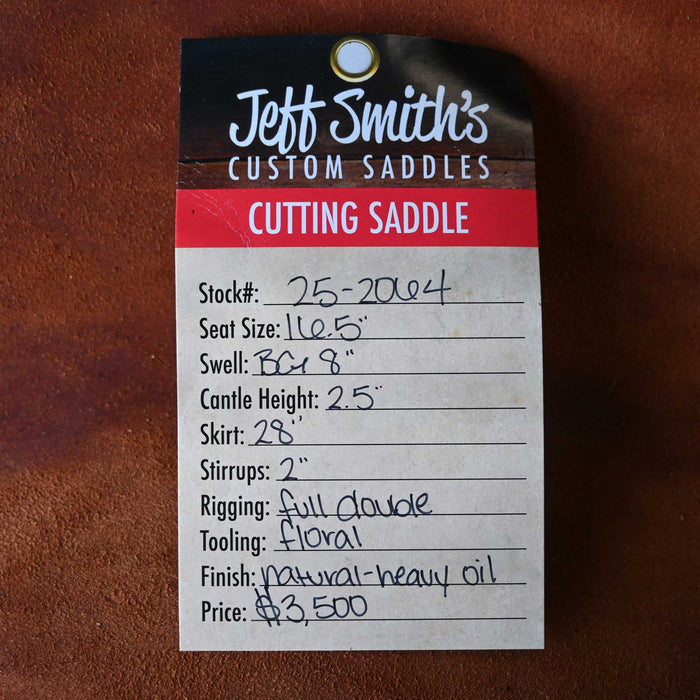 Jeff Smith's
CUSTOM SADDLES
CUTTING SADDLE
Stock#: 25-2064
Seat Size: 16.5"
Swell: BG 8"
Cantle Height: 2.5"
Skirt: 28"
Stirrups: 2"
Rigging: full double
Tooling: floral
Finish: natural-heavy oil
Price: $3,500